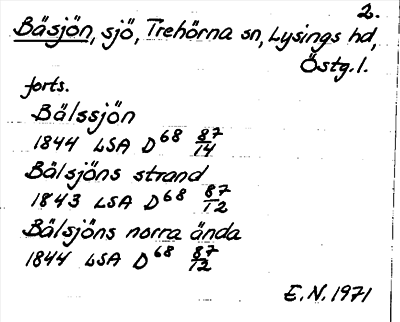 2.
Bäsjön, sjö, Trehörna sn, Lysings hd,
Östg. l.
forts.
Bälssjön
1844 LSA D68 87/14
Bälsjöns strand
1843 LSA D68 87/12
Bälsjöns norra ända
1844 LSA D68 87/12
E.N. 1971